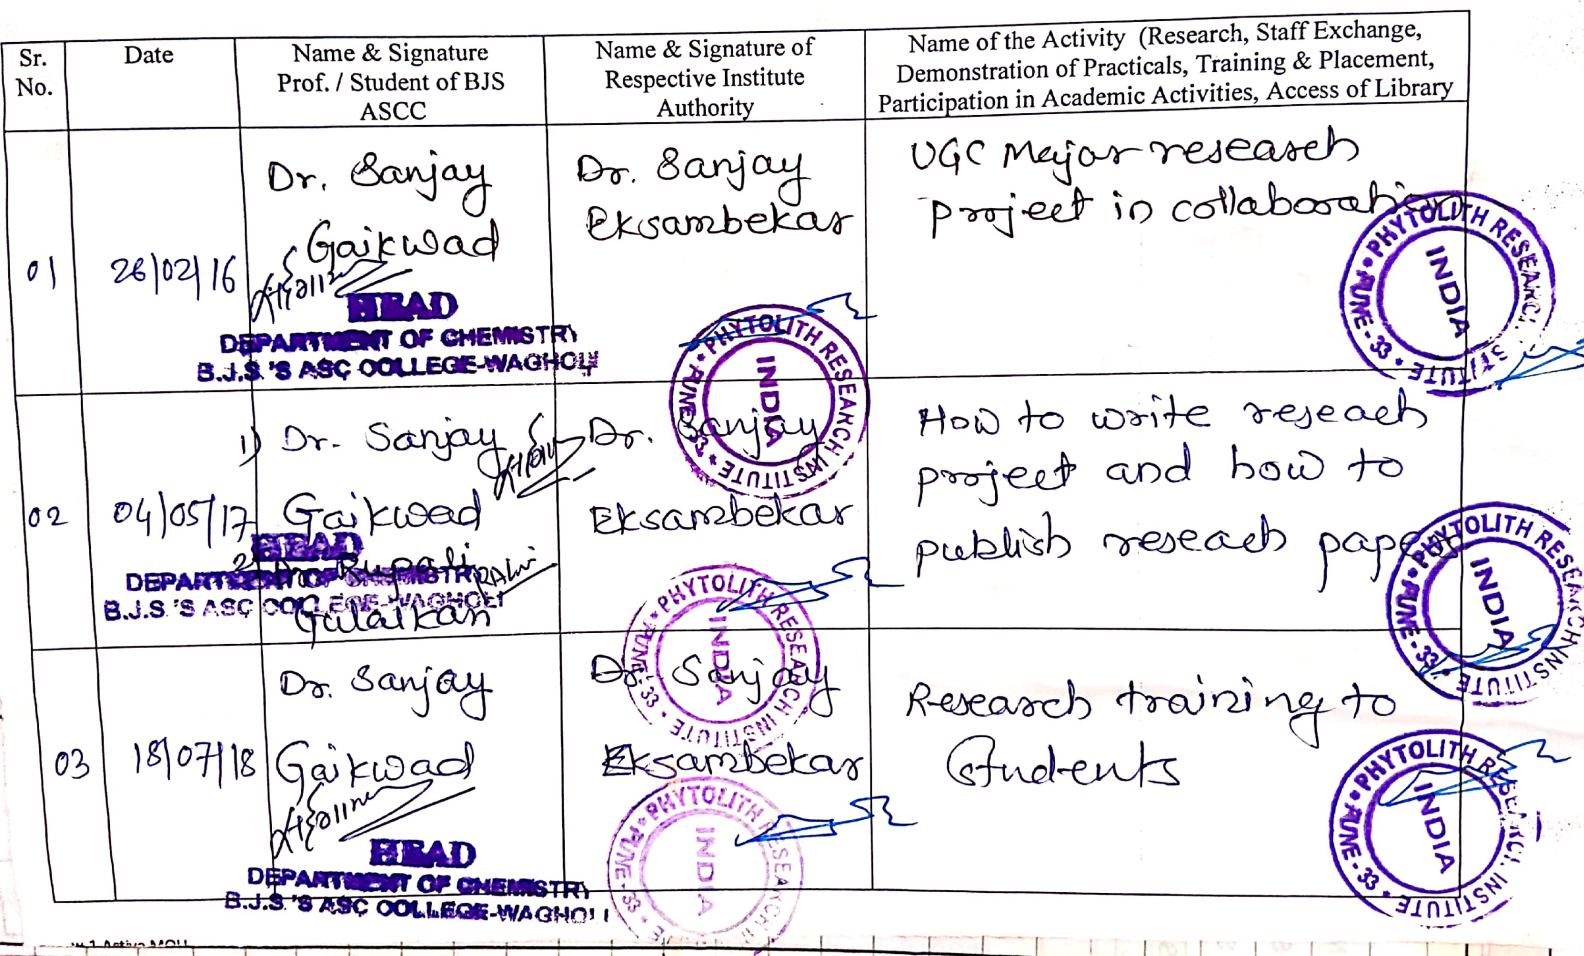 Sr. No.
Date
Name & Signature
Prof. / Student of BJS
ASCC
Name & Signature of
Respective Institute
Authority
Name of the Activity (Research, Staff Exchange,
Demonstration of Practicals, Training & Placement,
Participation in Academic Activities, Access of Library
01
26/02/16
Dr. Sanjay
Gaikwad
HEAD
DEPARTMENT OF CHEMISTRY
B.J.S.'S ASC COLLEGE-WAGHOLI
Dr. Sanjay
Eksambekar
PHYTOLITH RESEARCH INSTITUTE
PUNE-33
INDIA
UGC Major research
project in collaboration
PHYTOLITH RESEARCH INSTITUTE
PUNE-33
INDIA
02
04/05/17
1) Dr. Sanjay
Gaikwad
HEAD
2) Dr. Rupali
DEPARTMENT OF CHEMISTRY
B.J.S.'S ASC COLLEGE-WAGHOLI
Dr. Sanjay
Eksambekar
PHYTOLITH RESEARCH INSTITUTE
PUNE-33
INDIA
How to write reseach
project and how to
publish reseach paper
PHYTOLITH RESEARCH INSTITUTE
PUNE-33
INDIA
03
18/07/18
Dr. Sanjay
Gaikwad
HEAD
DEPARTMENT OF CHEMISTRY
B.J.S.'S ASC COLLEGE-WAGHOLI
Dr. Sanjay
Eksambekar
PHYTOLITH RESEARCH
PUNE-33
INDIA
Research training to
Students
PHYTOLITH RESEARCH INSTITUTE
PUNE-33
INDIA